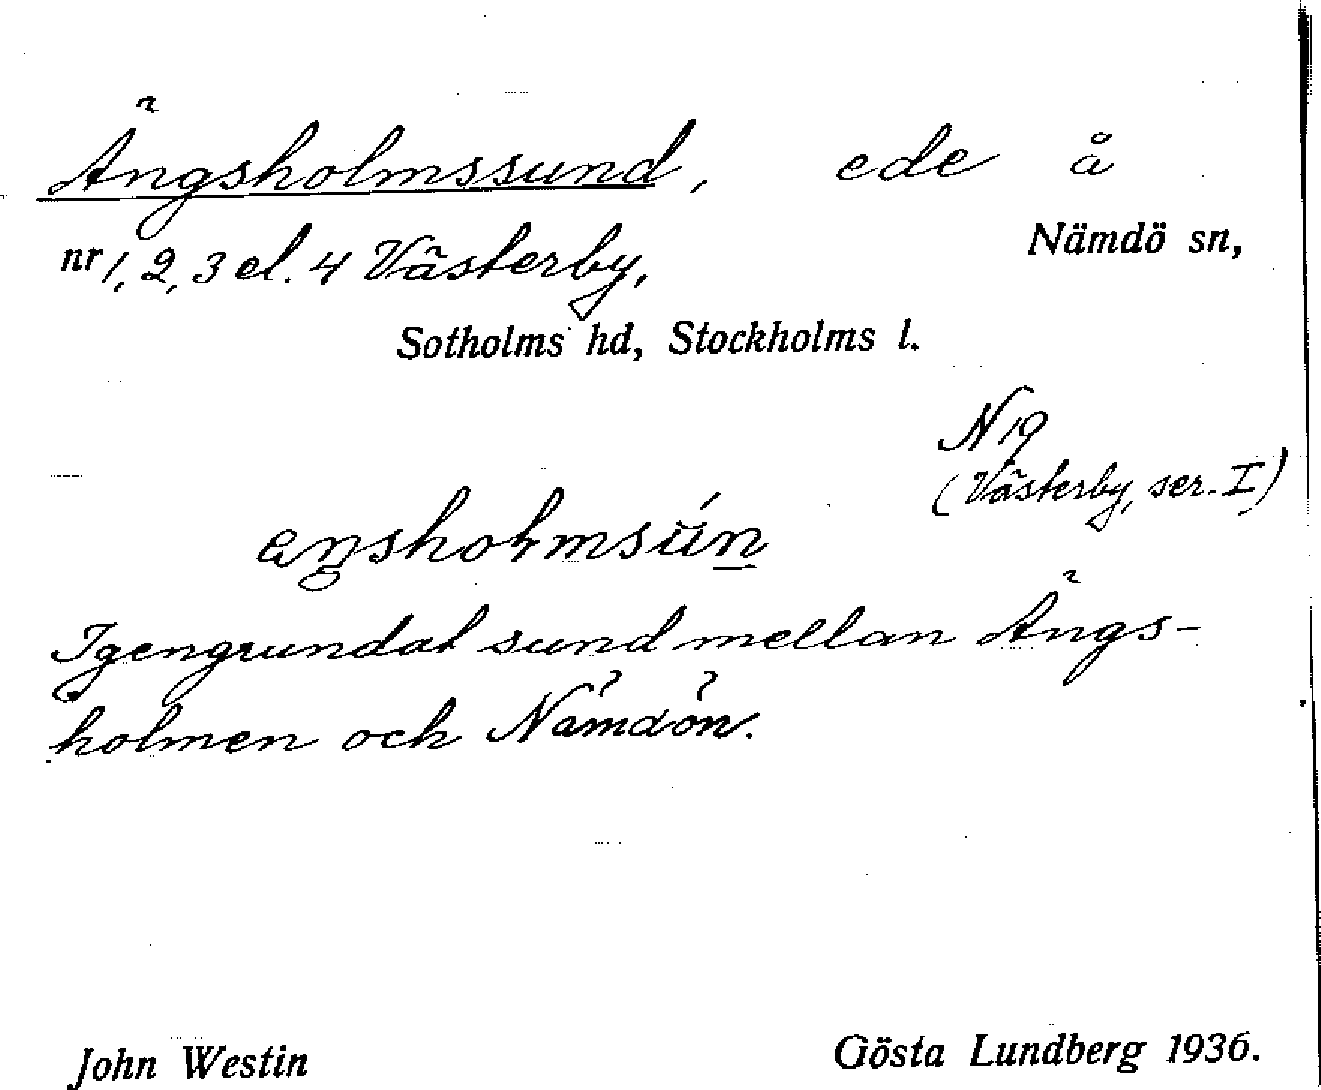 Ängsholmssund, ede å
nr 1, 2, 3 el. 4 Västerby, Nämdö sn,
Sotholms hd, Stockholms l.
N 19
(Västerby, ser. I)
Igengrundat sund mellan Ängs-
holmen och Nämdön.
John Westin Gösta Lundberg 1936.